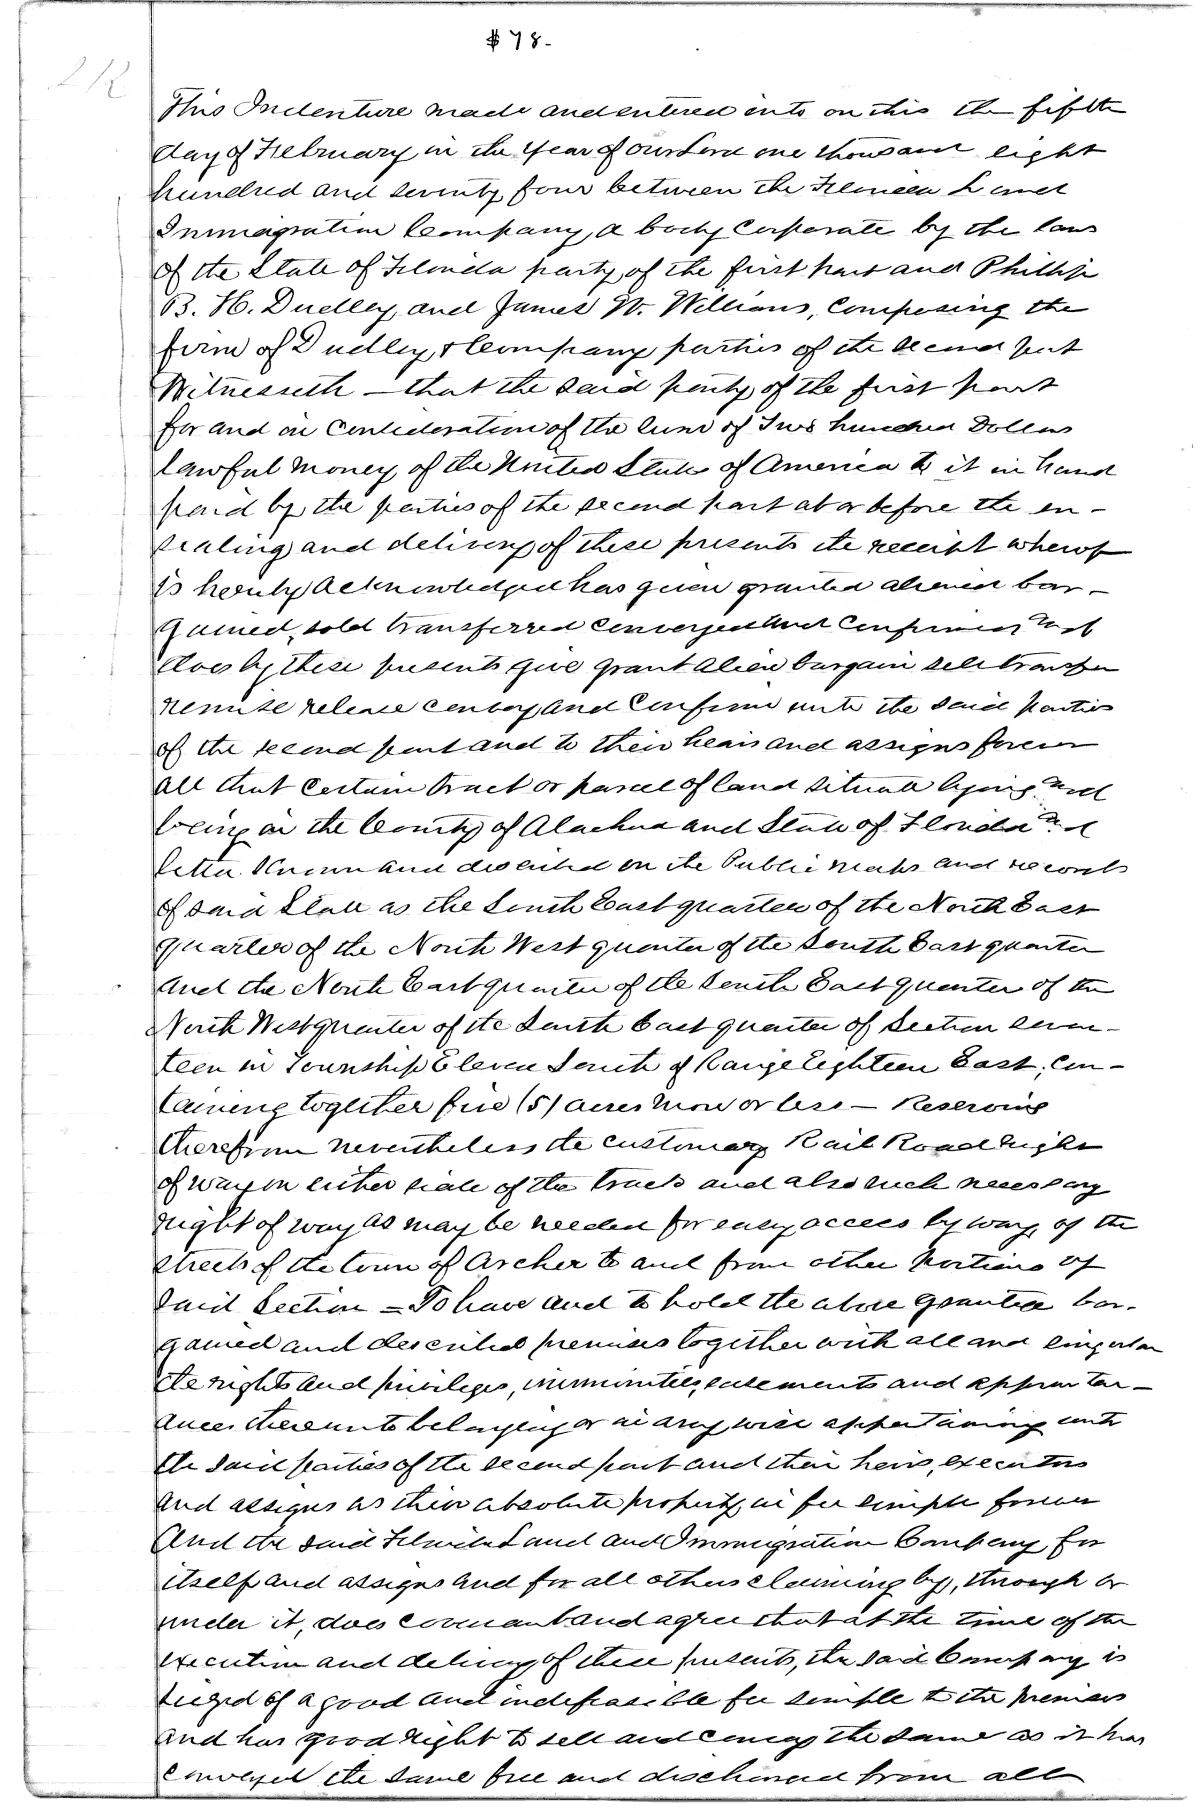 $78.-
This Indenture made and entered into on this the fifth
day of February in the year of our Lord one thousand eight
hundred and seventy four between the Florida Land
Immigration Company, a body Corporate by the laws
of the State of Florida party of the first part and Phillip
B. H. Dudley, and James W. Williams, Composing the
firm of Dudley & Company parties of the second part
Witnesseth — that the said party of the first part
for and in Consideration of the sum of Two hundred Dollars
lawful money of the United States of America to it in hand
paid by the parties of the second part at or before the en-
sealing and delivery of these presents the receipt whereof
is hereby Acknowledged has given granted aliened bar-
gained, sold transferred Conveyed and Confirmed and
does by these presents give grant alien bargain sell transfer
remise release Convey and Confirm unto the said parties
of the second part and to their heirs and assigns forever
all that Certain tract or parcel of land situate lying and
being in the County of Alachua and State of Florida and
better Known and described on the Public maps and records
of said State as the South East quarter of the North East
quarter of the North West quarter of the South East quarter
and the North East quarter of the South East quarter of the
North West quarter of the South East quarter of Section seven-
teen in Township Eleven South of Range Eighteen East, Con-
taining together five (5) acres more or less — Reserving
therefrom nevertheless the customary Rail Road right
of way on either side of the track and also such necessary
right of way as may be needed for easy access by way of the
streets of the town of Archer to and from other portions of
said Section = To have and to hold the above granted bar-
gained and described premises together with all and singular
the rights and privileges, immunities, easements and appurten-
ances thereunto belonging or in any wise appertaining unto
the said parties of the second part and their heirs, executors
and assigns as their absolute property in fee simple forever
And the said Florida Land and Immigration Company for
itself and assigns and for all others claiming by, through or
under it, does covenant and agree that at the time of the
execution and delivery of these presents, the said Company is
siezed of a good and indefeasible fee simple to the premises
and has good right to sell and convey the same as it has
Conveyed the same free and discharged from all